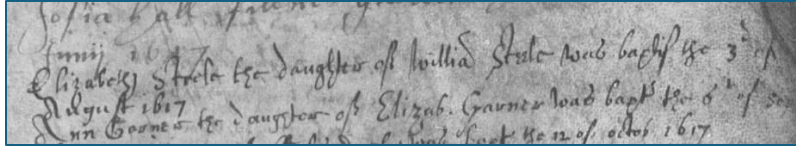 Junij 1617
Elizabeth Steele the daughter of Willia Steele was baptis the 3d of
August 1617
Ann Garner the daughter of Elizab. Garner was bapt the 6t of
bapt the 12 of octob 1617